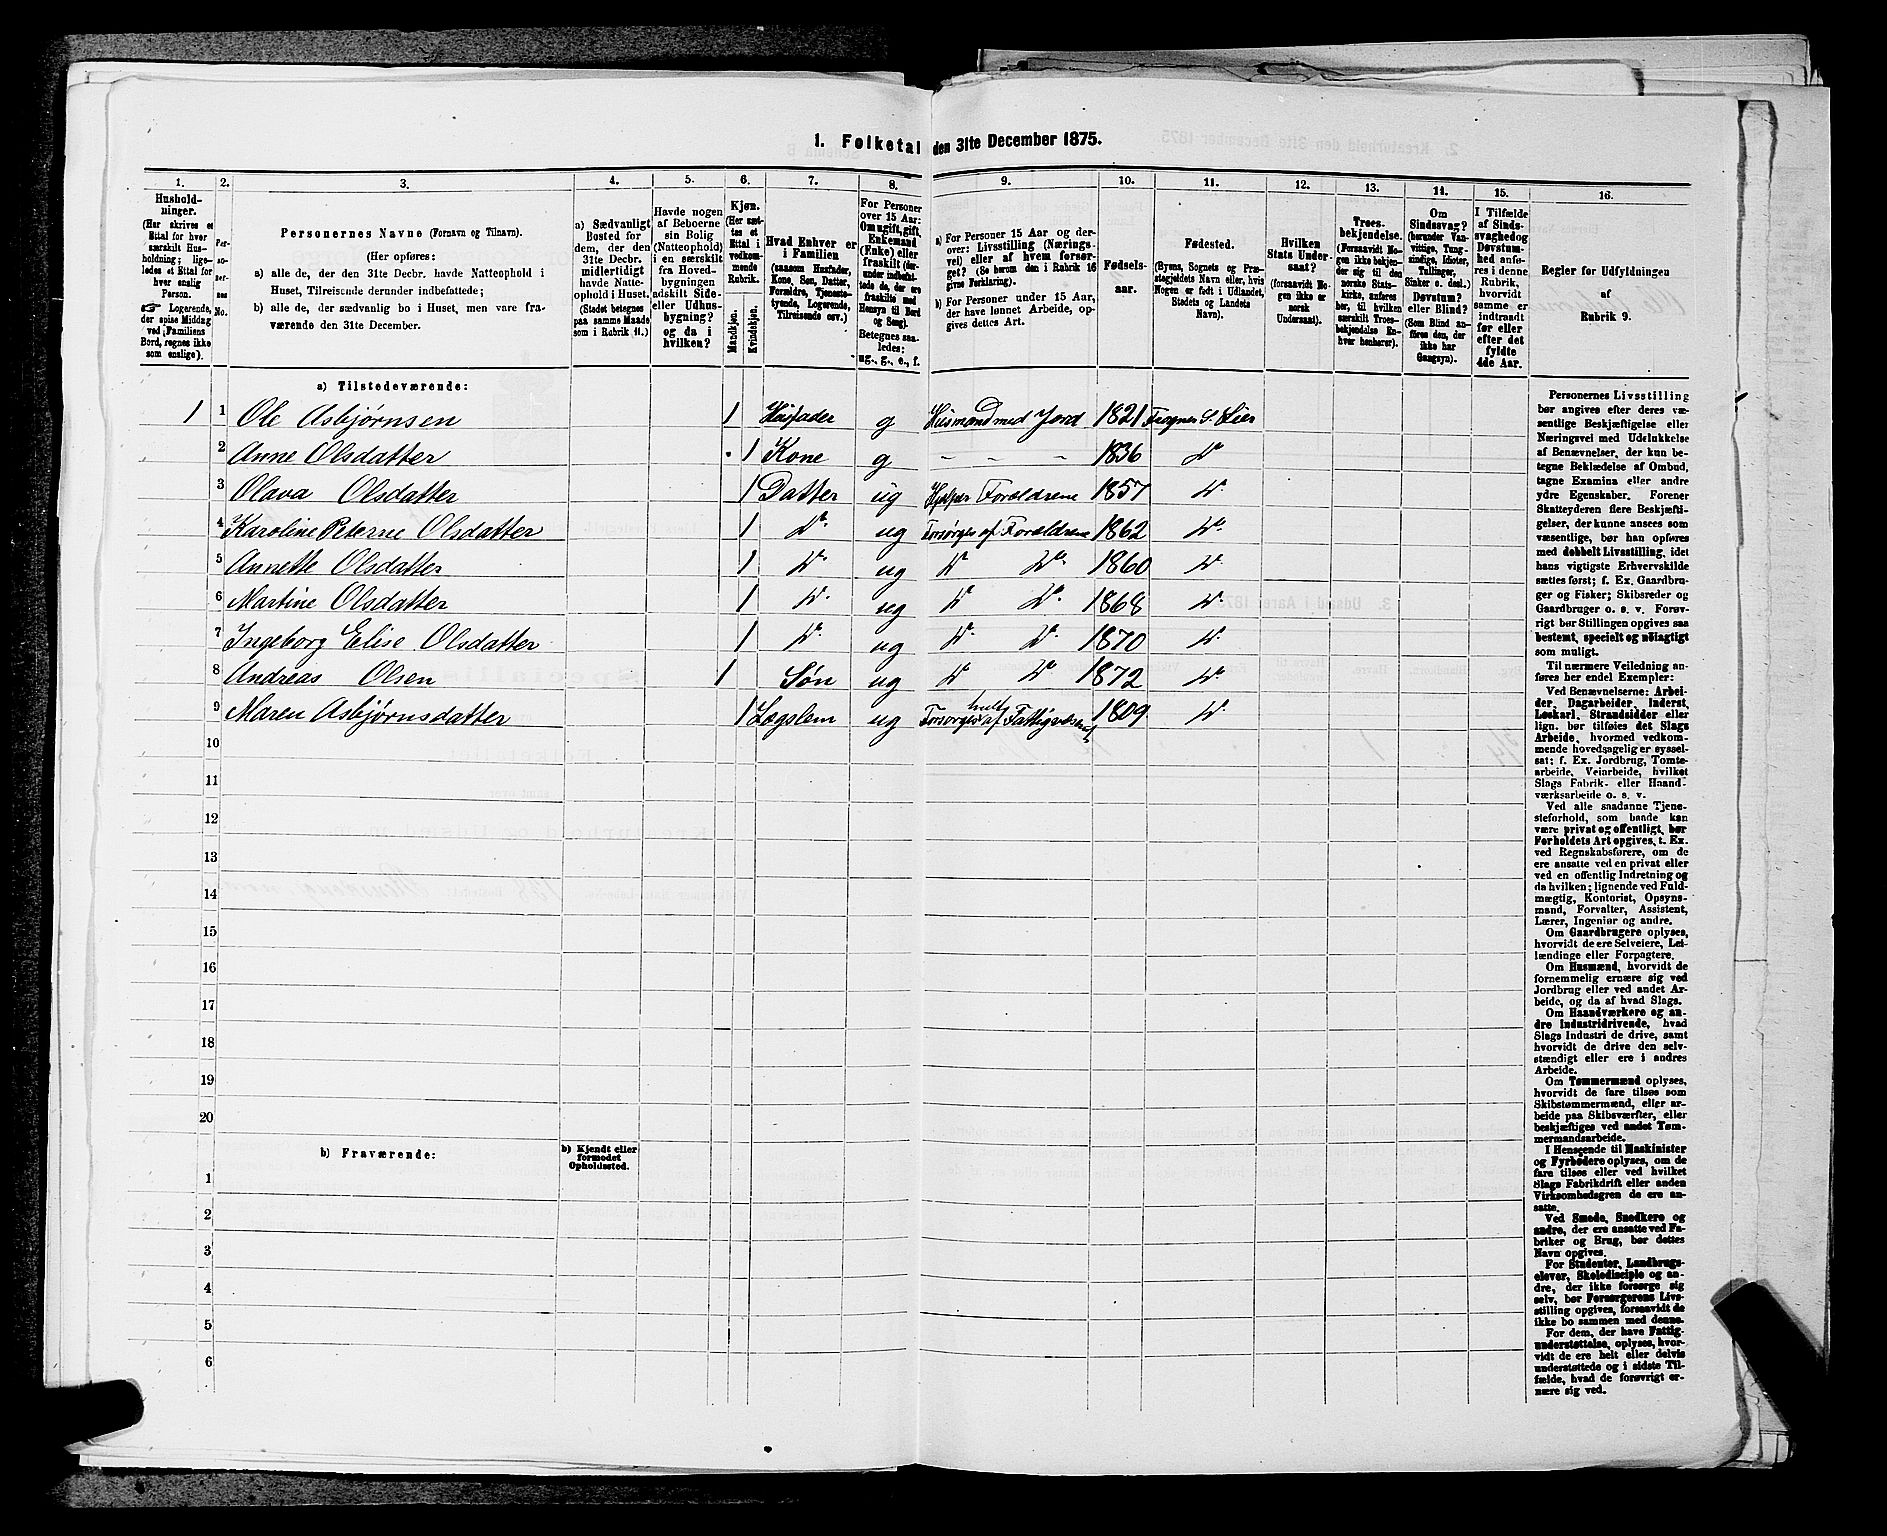 1. Folketal den 31te December 1875.
1. 2. 3. 4. 5. 6. 7. 8. 9. 10. 11. 12. 13. 14. 15. 16.
Husholdninger.
(Her skrives et
Ettal for hver
særskilt Hus-
holdning; lige-
ledes et Ettal for
hver enslig
Person.
☞ Logerende,
der spise Middag
ved Familiens
Bord, regnes ikke
som enslige).
Per-
so-
ner-
nes
No.
Personernes Navne (Fornavn og Tilnavn).
(Her opføres:
a) alle de, der den 31te Decbr. havde Natteophold i
Huset, Tilreisende derunder indbefattede;
b) alle de, der sædvanlig bo i Huset, men vare fra-
værende den 31te December.
a) Sædvanligt
Bosted for
dem, der den
31te Decbr.
midlertidigt
havde Natte-
ophold i Huset.
(Stedet betegnes
paa samme Maade
som i Rubrik 11.)
Havde nogen
af Beboerne
sin Bolig
(Natteophold)
i en særskilt
fra Hoved-
bygningen
adskilt Side-
eller Udhus-
bygning?
og da i
hvilken?
Kjøn.
(Her sæt-
tes et
Ettal i
vedkom-
mende
Rubrik.
Mandkjøn.
Kvindekjøn.
Hvad Enhver er
i Familien
(saasom Husfader,
Kone, Søn, Datter,
Forældre, Tjeneste-
tyende, Logerende,
Tilreisende osv.)
For Personer
over 15 Aar:
Om ugift, gift,
Enkemand
(Enke) eller
fraskilt (der-
under indbefat-
tede de, der ere
fraskilte med
Hensyn til Bord
og Seng).
Betegnes saa-
ledes:
ug., g., e., f.
a) For Personer 15 Aar og der-
over: Livsstilling (Nærings-
vei) eller af hvem forsør-
get? (Se herom den i Rubrik 16
givne Forklaring).
b) For Personer under 15 Aar,
der have lønnet Arbeide, op-
gives dettes Art.
Fødsels-
aar.
Fødested.
(Byens, Sognets og Præ-
stegjeldets Navn eller, hvis
Nogen er født i Udlandet,
Stedets og Landets
Navn).
Hvilken
Stats Under-
saat?
(forsaavidt No-
gen ikke er
norsk
Undersaat).
Troes-
bekjendelse.
(Forsaavidt No-
gen ikke bekjen-
der sig til den
norske Stats-
kirke, anføres
her, til hvilken
særskilt Troes-
bekjendelse En-
hver henhører).
Om
Sindssvag?
(herunder Van-
vittige, Tung-
sindige, Idioter,
Tullinger,
Sinker o. desl.)
Døvstum?
eller Blind?
(Som Blind an-
føres den, der
ikke har
Gangsyn).
I Tilfælde
af Sinds-
svaghed og
Døvstum-
hed anfø-
res i denne
Rubrik,
hvorvidt
samme er
indtraadt
før eller
efter det
fyldte
4de Aar.
Regler for Udfyldningen
af
Rubrik 9.
a) Tilstedeværende:
1 1 Ole Asbjørnsen 1 Husfader g Husmand med Jord 1821 Frogner S. Lier
2 Anne Olsdatter 1 Kone g - - - 1836 Do
3 Olava Olsdatter 1 Datter ug Hjelper Forældrene 1857 Do
4 Karoline Peterne Olsdatter 1 Do ug Forsørges af Forældrene 1862 Do
5 Annette Olsdatter 1 Do ug Do Do 1860 Do
6 Martine Olsdatter 1 Do ug Do Do 1868 Do
7 Ingeborg Elise Olsdatter 1 Do ug Do Do 1870 Do
8 Andreas Olsen 1 Søn ug Do Do 1872 Do
9 Maren Asbjørnsdatter 1 Lægslem ug Forsørges helt af Fattigvæsenet 1809 Do
10
11
12
13
14
15
16
17
18
19
20
b) Fraværende:
b) Kjendt eller
formodet
Opholdssted.
1
2
3
4
5
6
Personernes Livsstilling
bør angives efter deres væ-
sentlige Beskjæftigelse eller
Næringsvei med Udelukkelse
af Benævnelser, der kun be-
tegne Beklædelse af Ombud,
tagne Examina eller andre
ydre Egenskaber. Forener
Skatteyderen flere Beskjæfti-
gelser, der kunne ansees som
væsentlige, bør han opføres
med dobbelt Livsstilling, idet
hans vigtigste Erhvervskilde
sættes først; f. Ex. Gaardbru-
ger og Fisker; Skibsreder og
Gaardbruger o. s. v. Forøv-
rigt bør Stillingen opgives saa
bestemt, specielt og nöiagtigt
som muligt.
Til nærmere Veiledning an-
føres her endel Exempler:
Ved Benævnelserne: Arbei-
der, Dagarbeider, Inderst,
Løskarl, Strandsidder eller
lign. bør tilføies det Slags
Arbeide, hvormed vedkom-
mende hovedsagelig er syssel-
sat; f. Ex. Jordbrug, Tomte-
arbeide, Veiarbeide, hvilket
Slags Fabrik- eller Haand-
værksarbeide o. s. v.
Ved alle saadanne Tjene-
steforhold, som baade kan
være privat og offentligt, bør
Forholdets Art opgives, t. Ex.
ved Regnskabsførere, om de
ere ansatte ved en privat eller
ved en offentlig Indretning og
da hvilken; lignende ved Fuld-
mægtig, Kontorist, Opsyns-
mand, Forvalter, Assistent,
Lærer, Ingeniør og andre.
Om Gaardbrugere oplyses,
hvorvidt de ere Selveiere, Lei-
lændinge eller Forpagtere.
Om Husmænd, hvorvidt de
fornemmelig ernære sig ved
Jordbrug eller ved andet Ar-
beide, og da af hvad Slags.
Om Haandværkere og an-
dre Industridrivende, hvad
Slags Industri de drive, samt
hvorvidt de drive den selv-
stændigt eller ere i andres
Arbeide.
Om Tømmermænd oplyses,
hvorvidt de fare tilsøs som
Skibstømmermænd, eller ar-
beide paa Skibsværfter, eller
beskjæftiges ved andet Tøm-
mermandsarbeide.
I Henseende til Maskinister
og Fyrbødere oplyses, om de
fare tilsøs eller ved hvilket
Slags Fabrikdrift eller anden
Virksomhedsgren de ere an-
satte.
Ved Smede, Snedkere og
andre, der ere ansatte ved Fa-
briker og Brug, bør dettes
Navn opgives.
For Studenter, Landbrugs-
elever, Skoledisciple og an-
dre, der ikke forsørge sig
selv, bør Forsørgerens Livs-
stilling opgives, forsaavidt de
ikke bo sammen med denne.
For dem, der have Fattig-
understøttelse, oplyses, hvor-
vidt de ere helt eller delvis
understøttede og i sidste Til-
fælde, hvad de forøvrigt er-
nære sig ved.